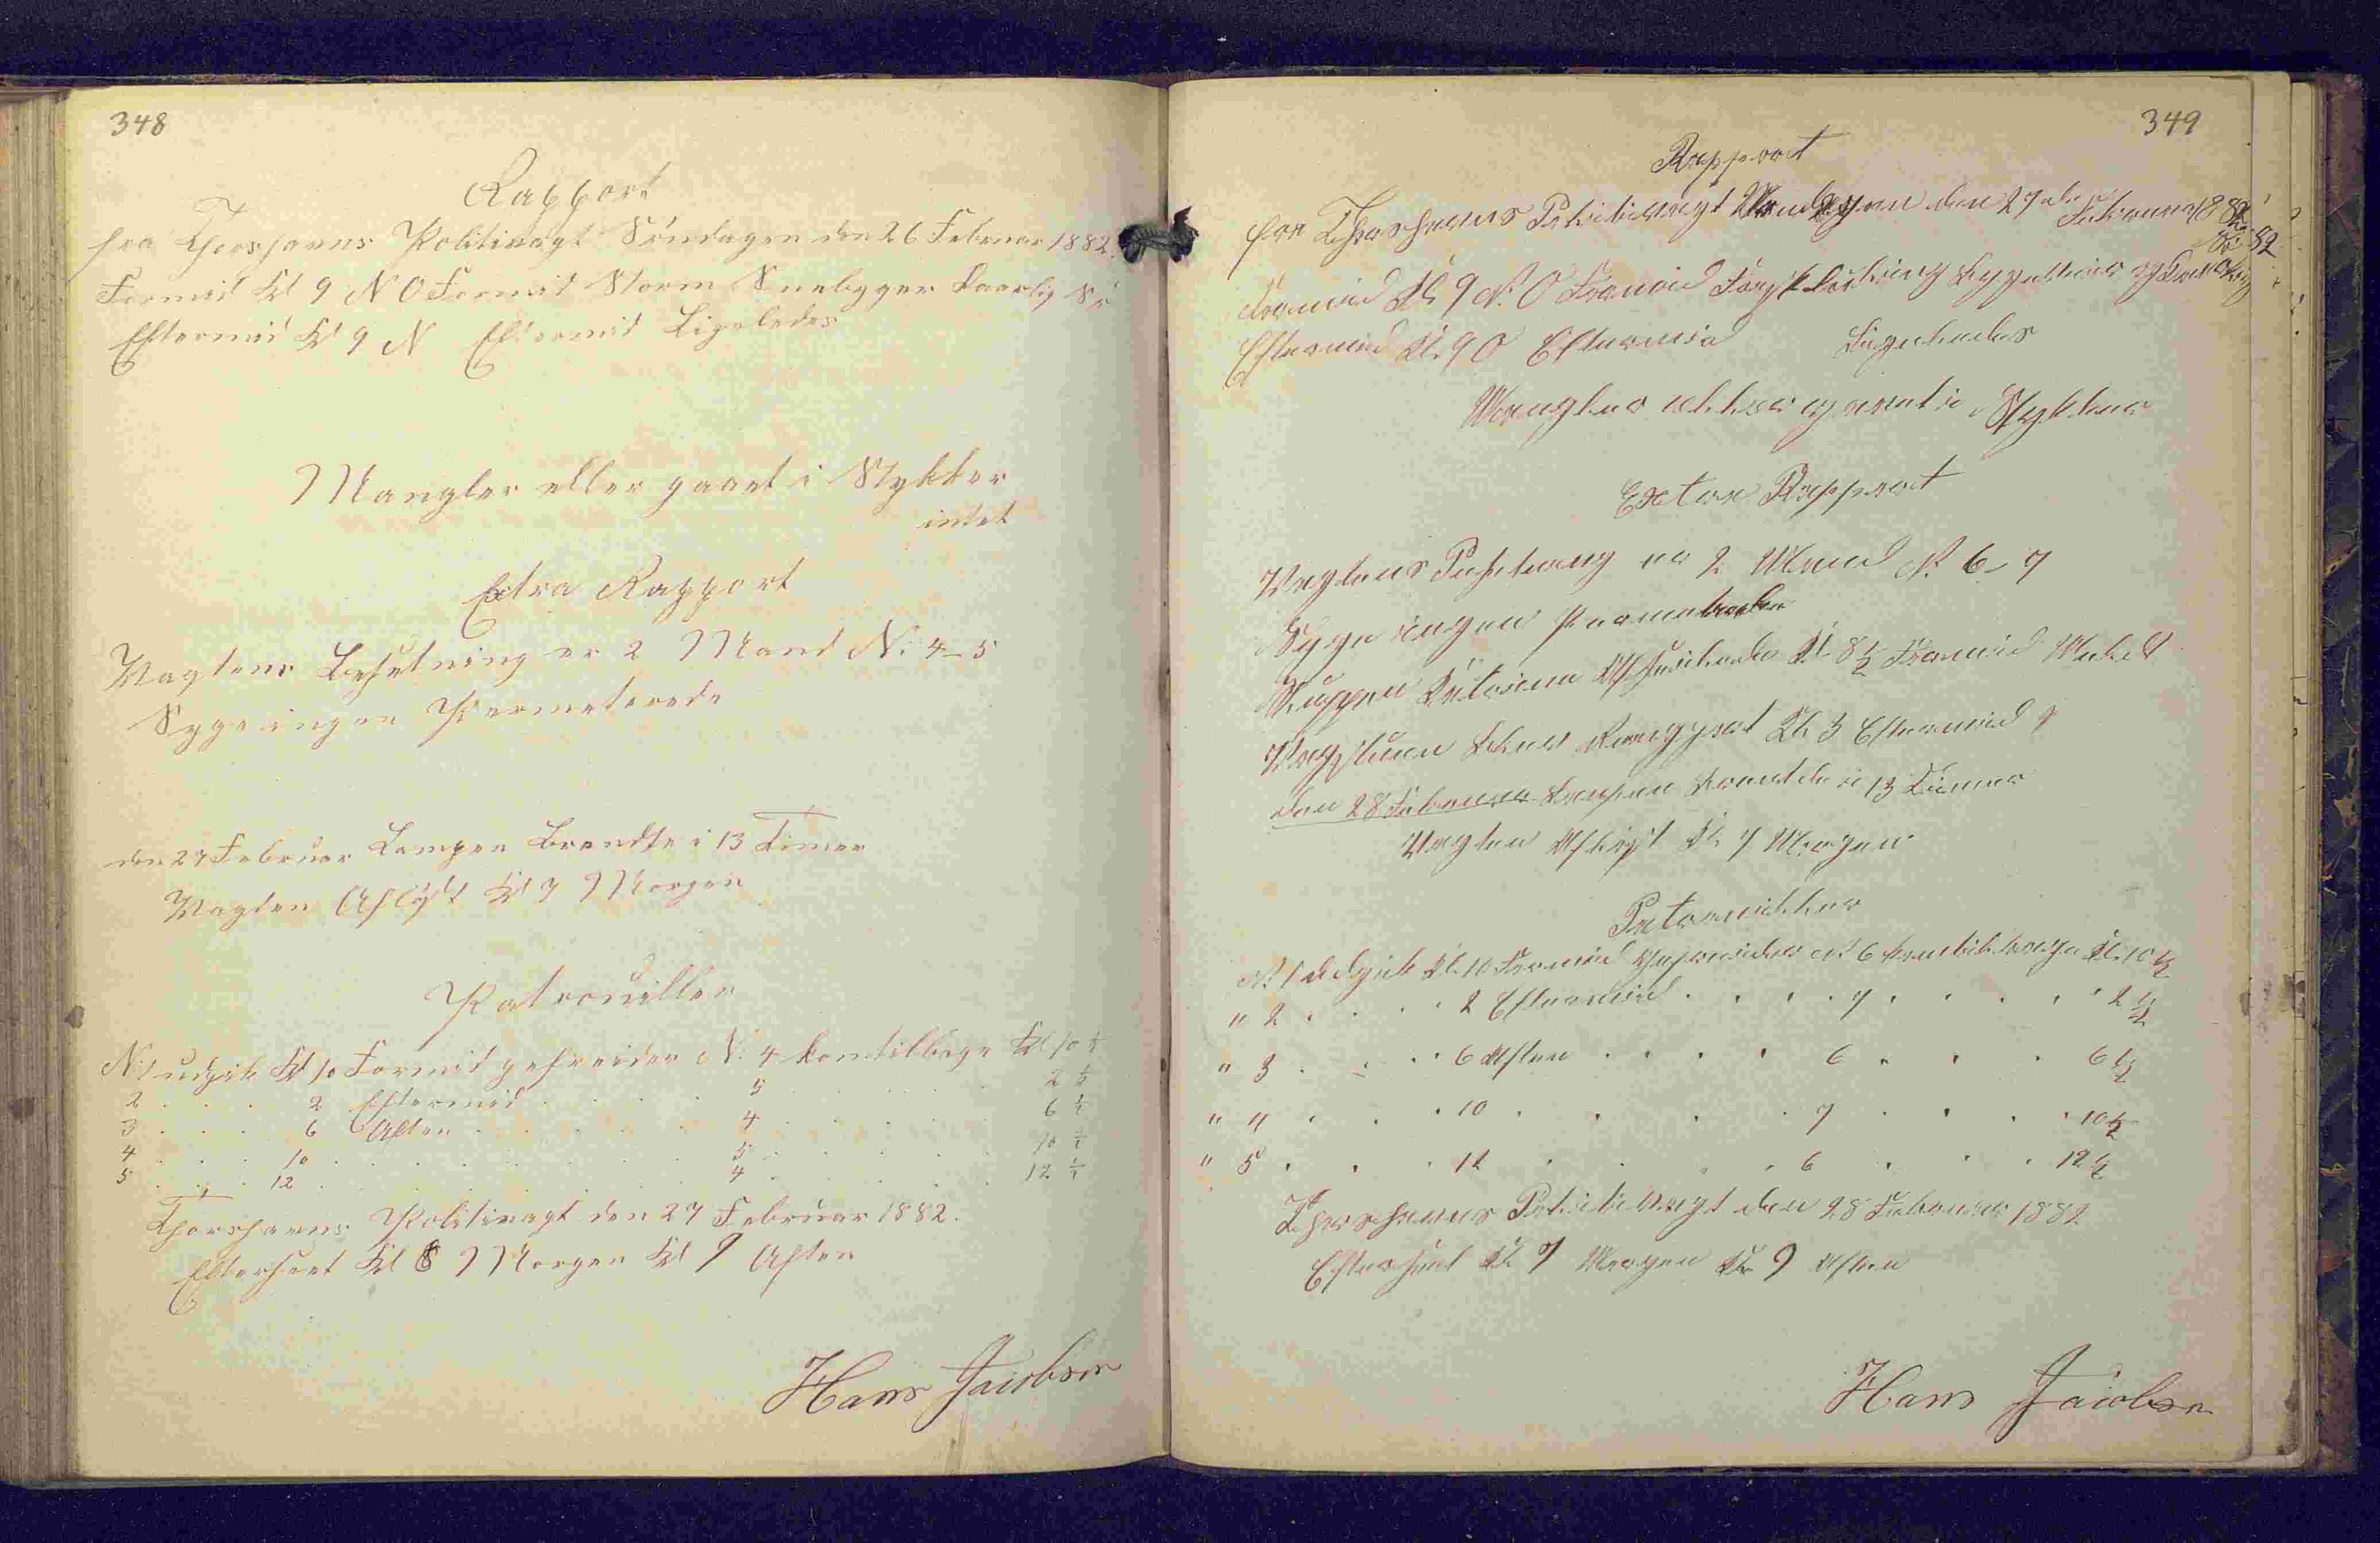 348
Rapport
fra Thorshavns Politivagt Søndagen den 26 Februar 1882.
Formid Kl 9 N O Formid Storm Snebyger daarlig Sö
Eftermid Kl 9 N Eftermid Ligeledes
Mangler eller gaaet i Stykker
intet
Extra Rapport
Vagtens Besetning er 2 Mand N: 4-5
Syge ingen Permeterede
den 27 Februar Lampen Brendte i 13 Timer
Vagten Aflöst Kl 7 Morgen
Patrouiller
N:1 udgik Kl 10 Formid gefreider N: 4 kom tilbage Kl 10 ½
2 . . . 2 Eftermid . . . 5 . . . 2 ½
3 . . . 6 Aften . . . 4 . . . 6 ½
4 . . . 10 . . . 5 . . . 10 ½
5 . . . 12 . . . 4 . . . 12 ½
Thorshavns Politivagt den 27 Februar 1882.
Efterseet Kl 8 Morgen Kl 9 Aften
Hans Jacobsen
349
Rapport
fra Thorshavns Politivagt Mandagen den 27de Februar 1882
Formid Kl 9 N. O Formid Frisk Kuling Bygeveir og
Eftermid Kl. 9 O Eftermid Ligeledes
Mangler eller gaaet i Stykker
Extra Rapport
Vagtens Besetning er 2 Mand N. 6-7
Syge ingen Permeterede
Kl 8 ½ Formid
Vagstuen blev Rengjort Kl. 3 Eftermid
den 28 Februar Lampen brendte i 13 Timer
Vagten Aflöst Kl. 7 Morgen
Patrouiller
N. 1 udgik Kl. 10 Formid gefreider N. 6 kom tilbage Kl. 10 ½
" 2 . . . 2 Eftermid . . . 7 . . . 2 ½
" 3 . . . 6 Aften . . . 6 . . . 6 ½
" 4 . . . 10 . . . 7 . . . 10 ½
" 5 . . . 12 . . . 6 . . . 12 ½
Thorshavns Politivagt den 28 Februar 1882
Efterseet Kl. 7 Morgen Kl. 9 Aften
Hans Jacobsen